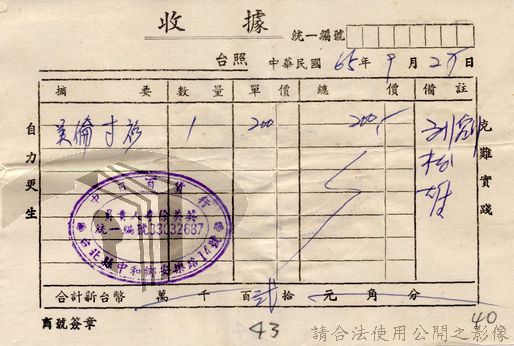 收據
統一編號
台照 中華民國 65年9月2 日
摘要 數量 單價 總價 備註
1 200 200
自力更生
克難實踐
百貨行
負責人李徐美英
統一編號33032687
台北縣中和鄉安樂路16號
合計新台幣 萬 千 百 拾 元 角 分
貳
商號簽章
43
40
請合法使用公開之影像